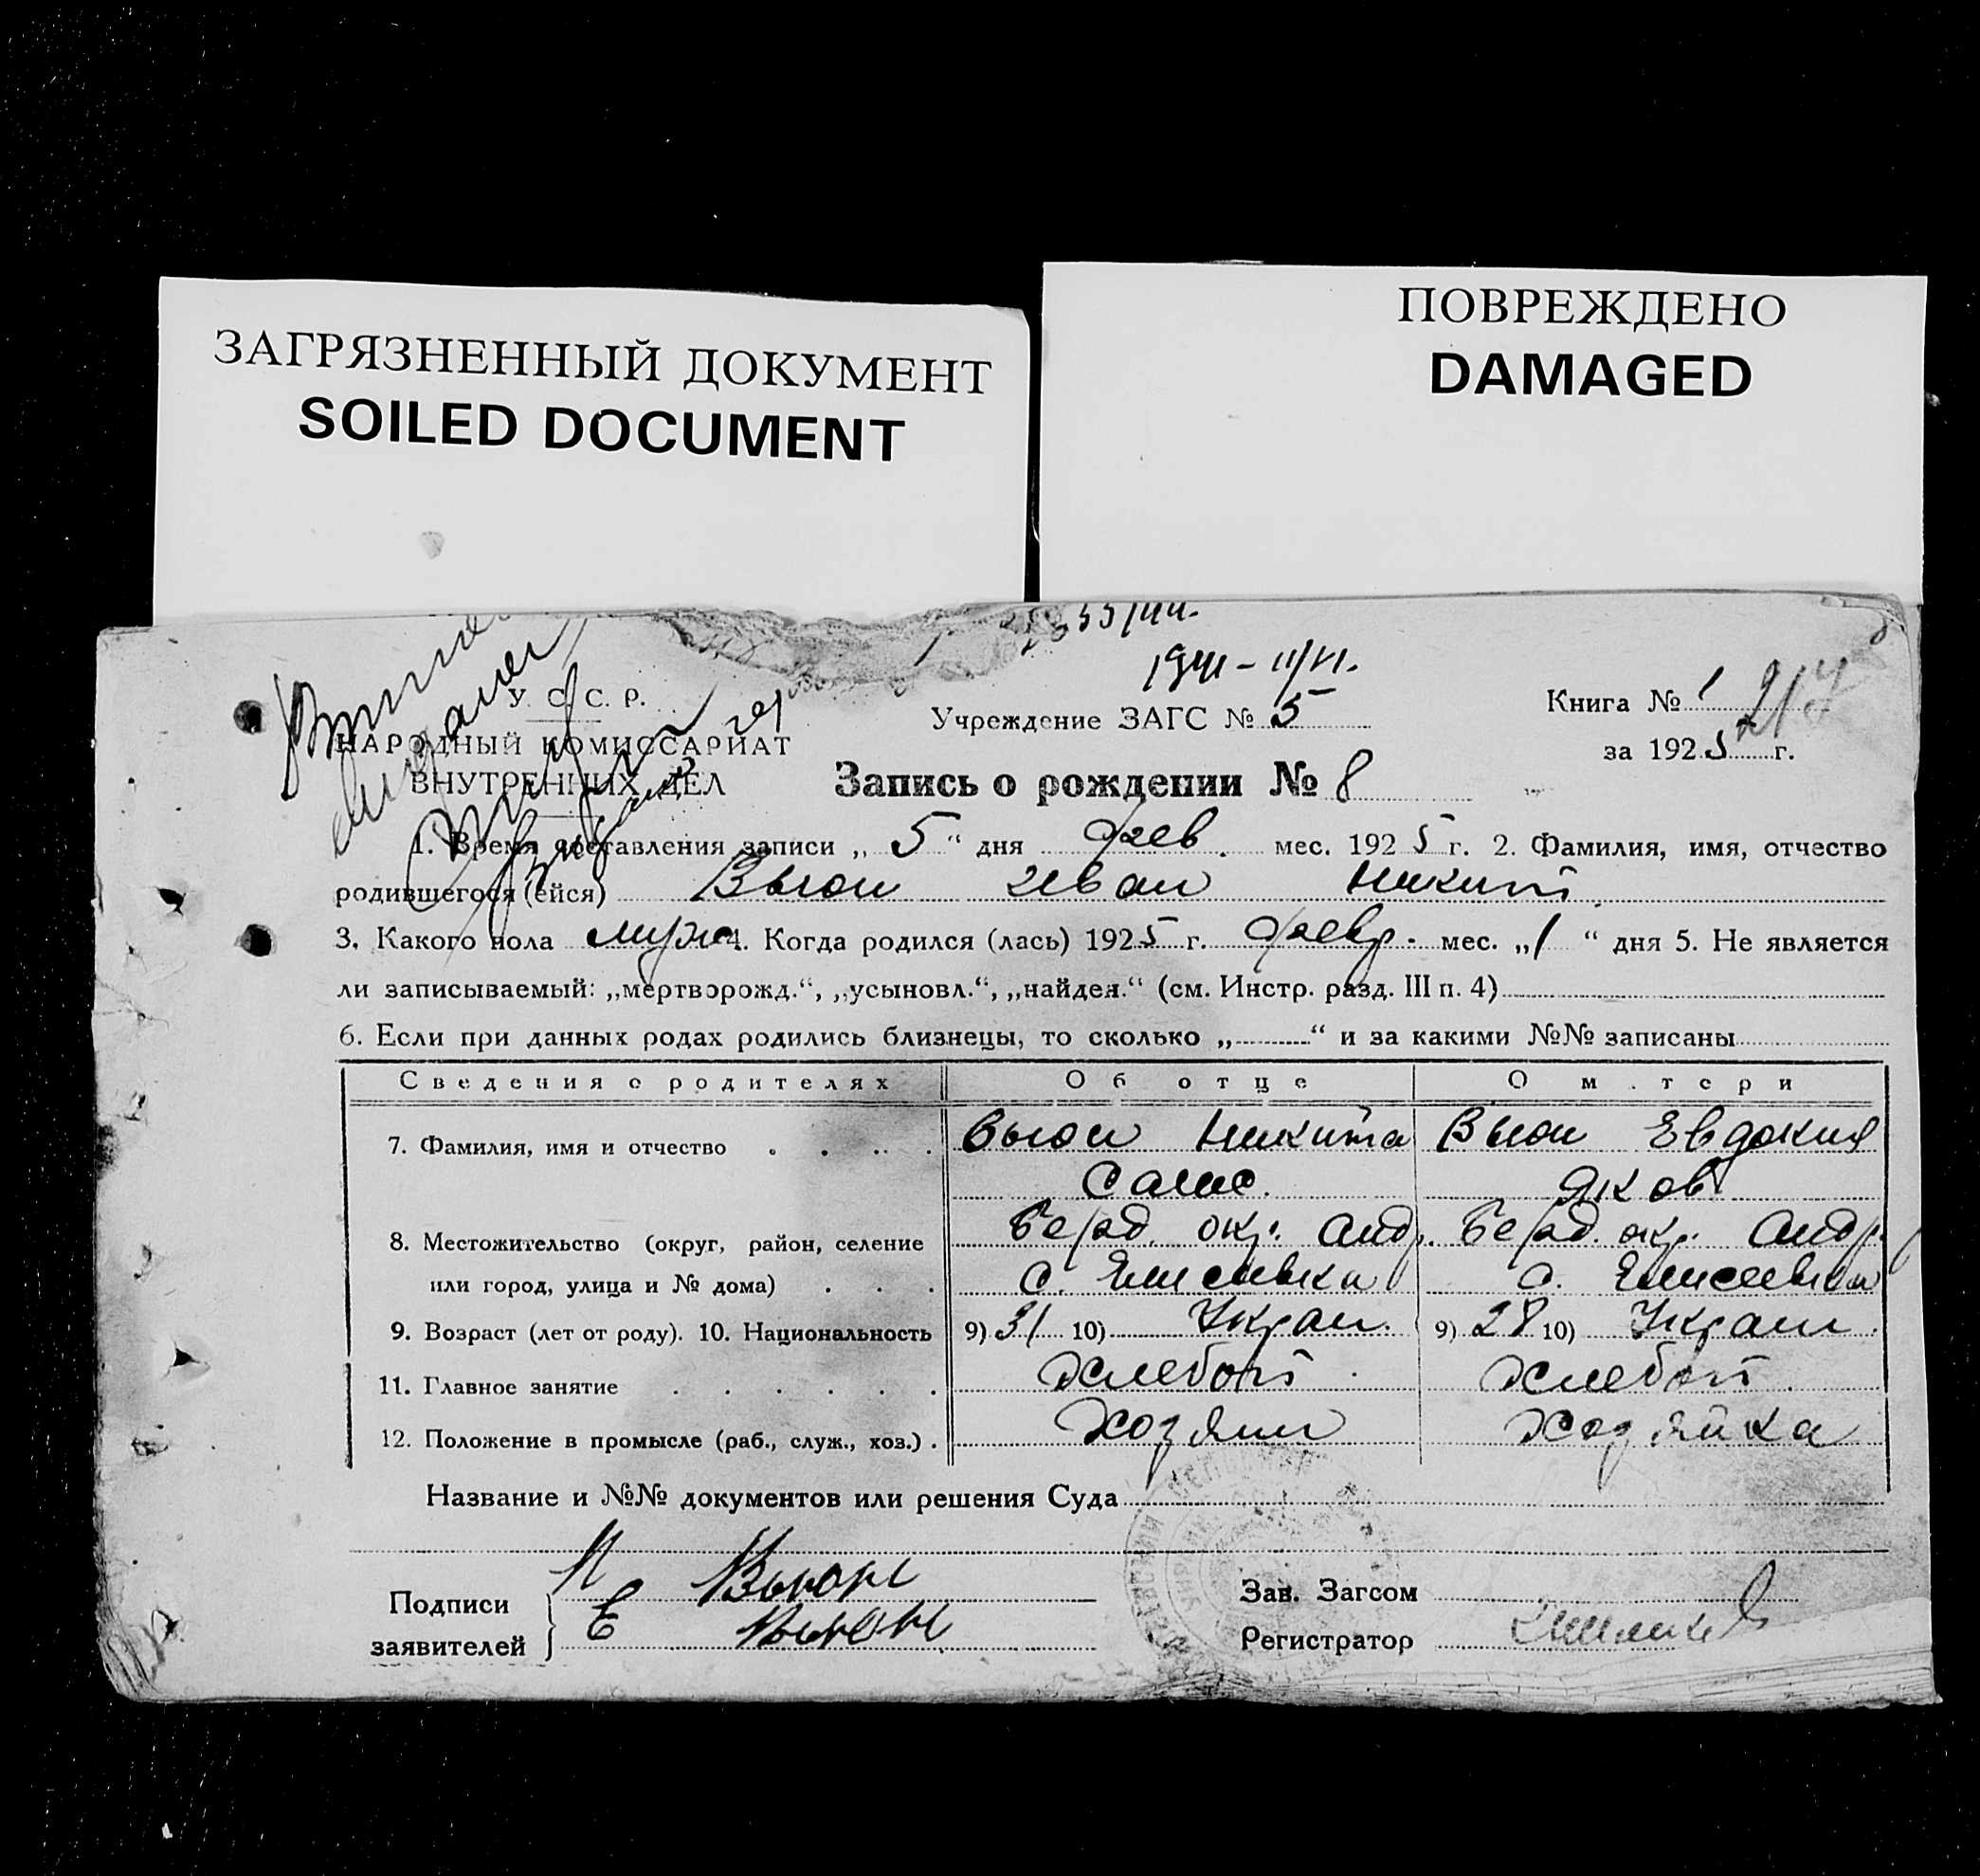 ЗАГРЯЗНЕННЫЙ ДОКУМЕНТ
SOILED DOCUMENT
ПОВРЕЖДЕНО
DAMAGED
У. С. С. Р.
НАРОДНЫЙ КОМИССАРИАТ
ВНУТРЕННИХ ДЕЛ
1941 - 11/VI.
Учреждение ЗАГС № 5
Книга № 1 217
за 1925 г.
Запись о рождении № 8
1. Время составления записи „ 5 “ дня фев. мес. 1925 г. 2. Фамилия, имя, отчество
родившегося (ейся) Вьюн Иван Никит.
3. Какого пола муж 4. Когда родился (лась) 1925 г. февр. мес. „1 “ дня 5. Не является
ли записываемый: „мертворожд.“, „усыновл.“, „найден.“ (см. Инстр. разд. III п. 4)
6. Если при данных родах родились близнецы, то сколько „ “ и за какими №№ записаны
Сведения о родителях Об отце О м.тери
7. Фамилия, имя и отчество Вьюн Никита Вьюн Евдокия
Самс. Яков.
8. Местожительство (округ, район, селение Берд. окр. Андр. Берд. окр. Андр.
или город, улица и № дома) с. Елисеивка с. Елисеевка
9. Возраст (лет от роду). 10. Национальность 9) 31 10) Украи. 9) 28 10) Украи.
11. Главное занятие Хлебот. Хлебот.
12. Положение в промысле (раб., служ., хоз.) . Хозяин Хозяйка
Название и №№ документов или решения Суда
Подписи
заявителей
Н Вьюн
Е Вьюн
Зав. Загсом
Регистратор